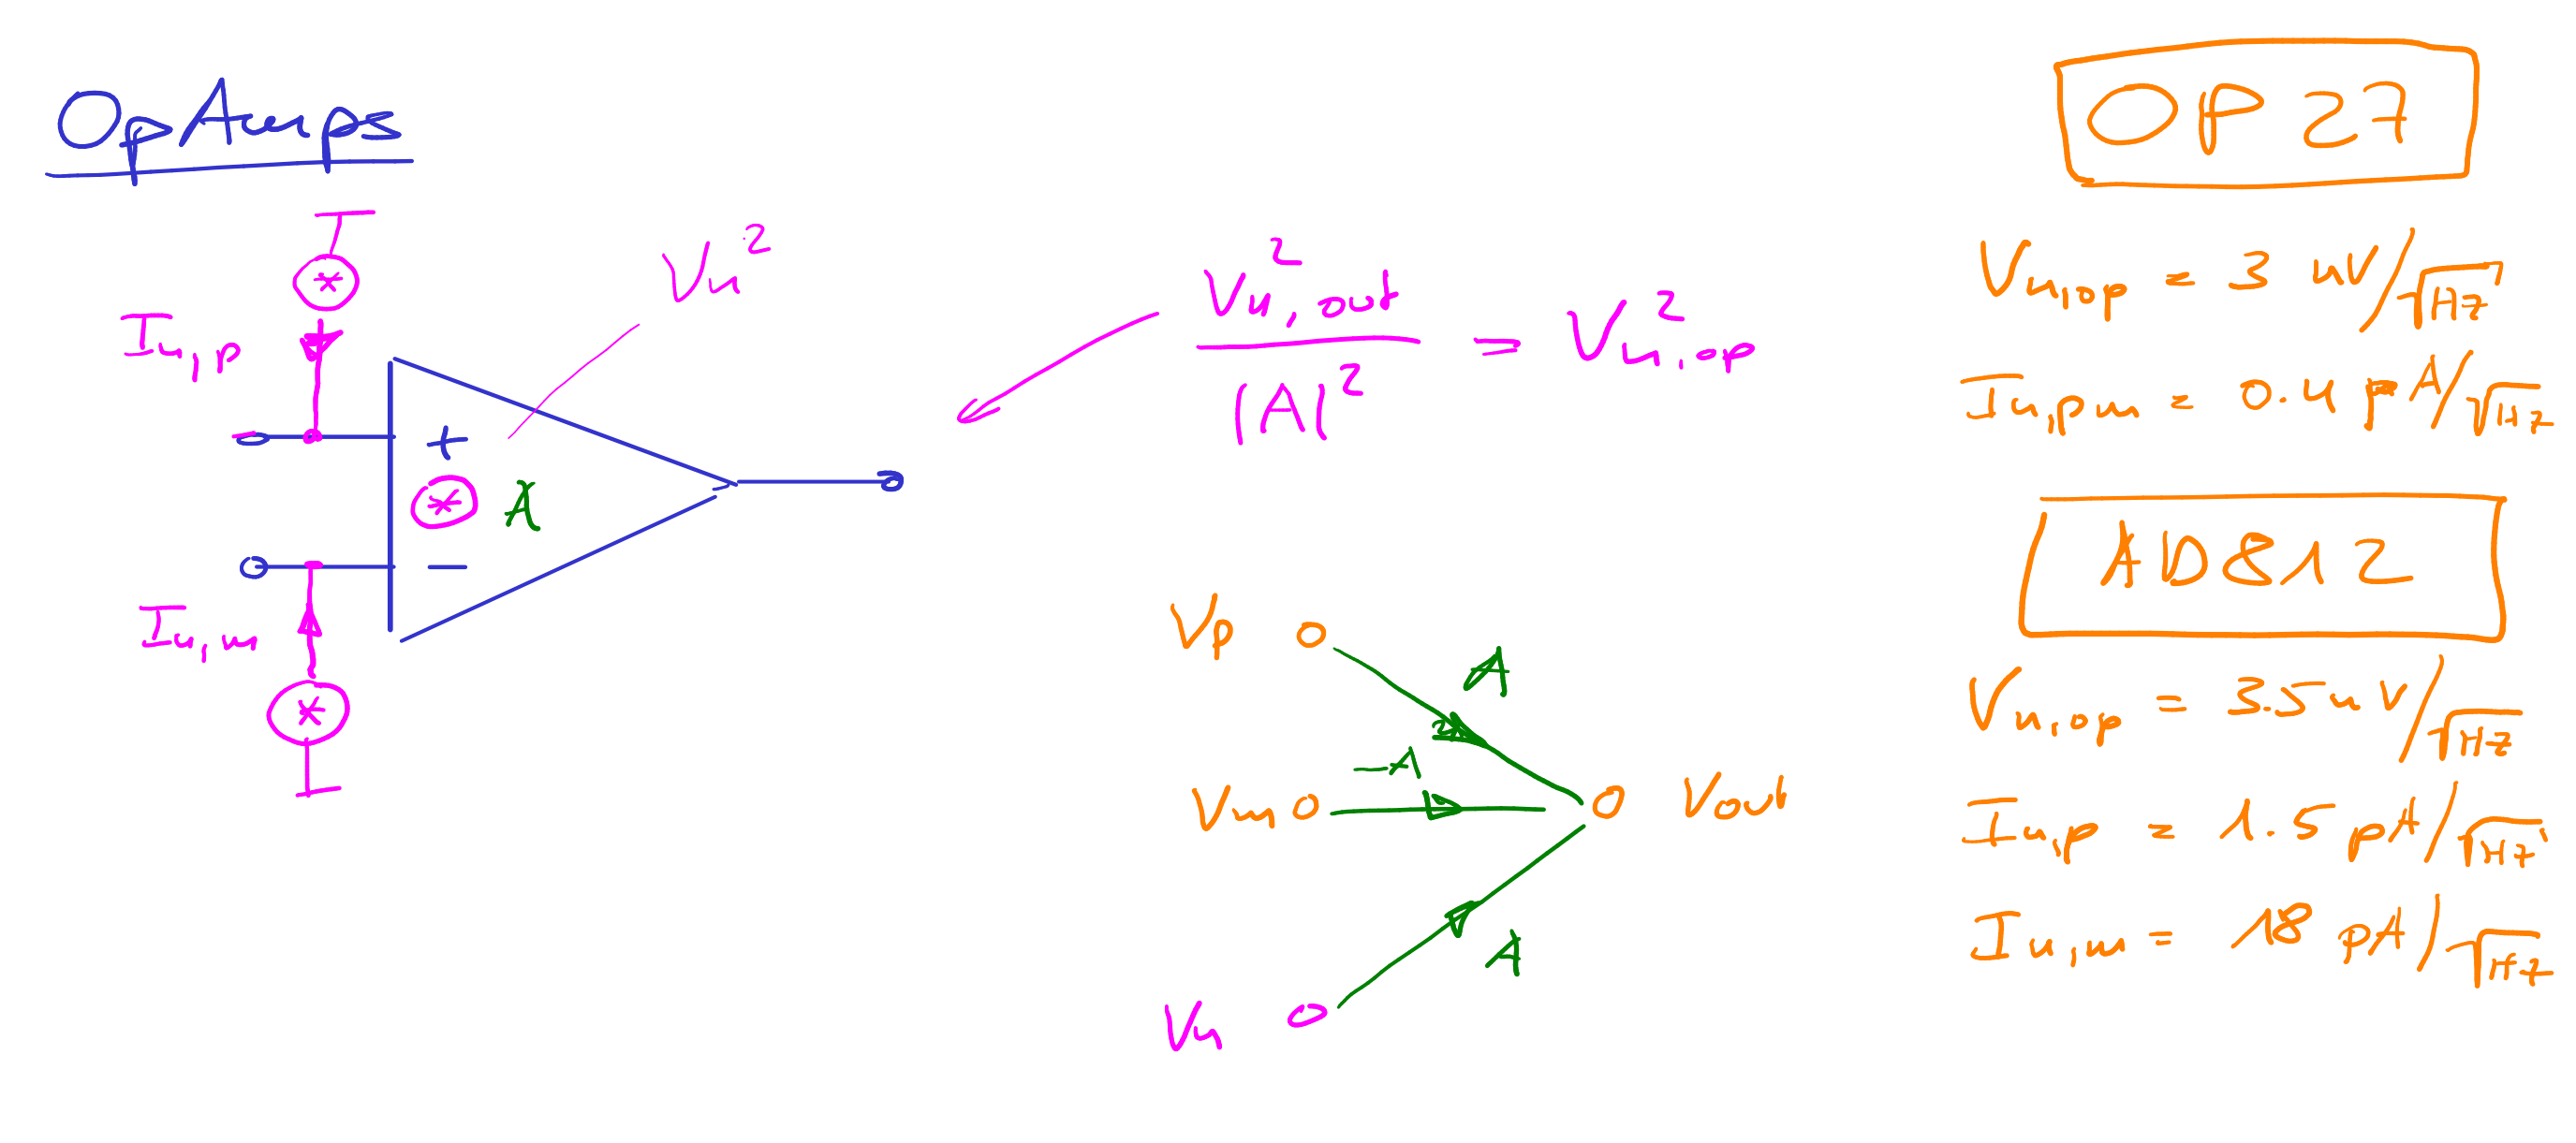 OpAmps
I n,p
Vn²
+
A
−
I n,m
Vn,out² / |A|² = Vn,op²
Vp
A
−A
Vm
Vout
A
Vn
OP 27
Vn,op = 3 nV/√Hz
In,pm = 0.4 pA/√Hz
AD812
Vn,op = 3.5 nV/√Hz
In,p = 1.5 pA/√Hz
In,m = 18 pA/√Hz